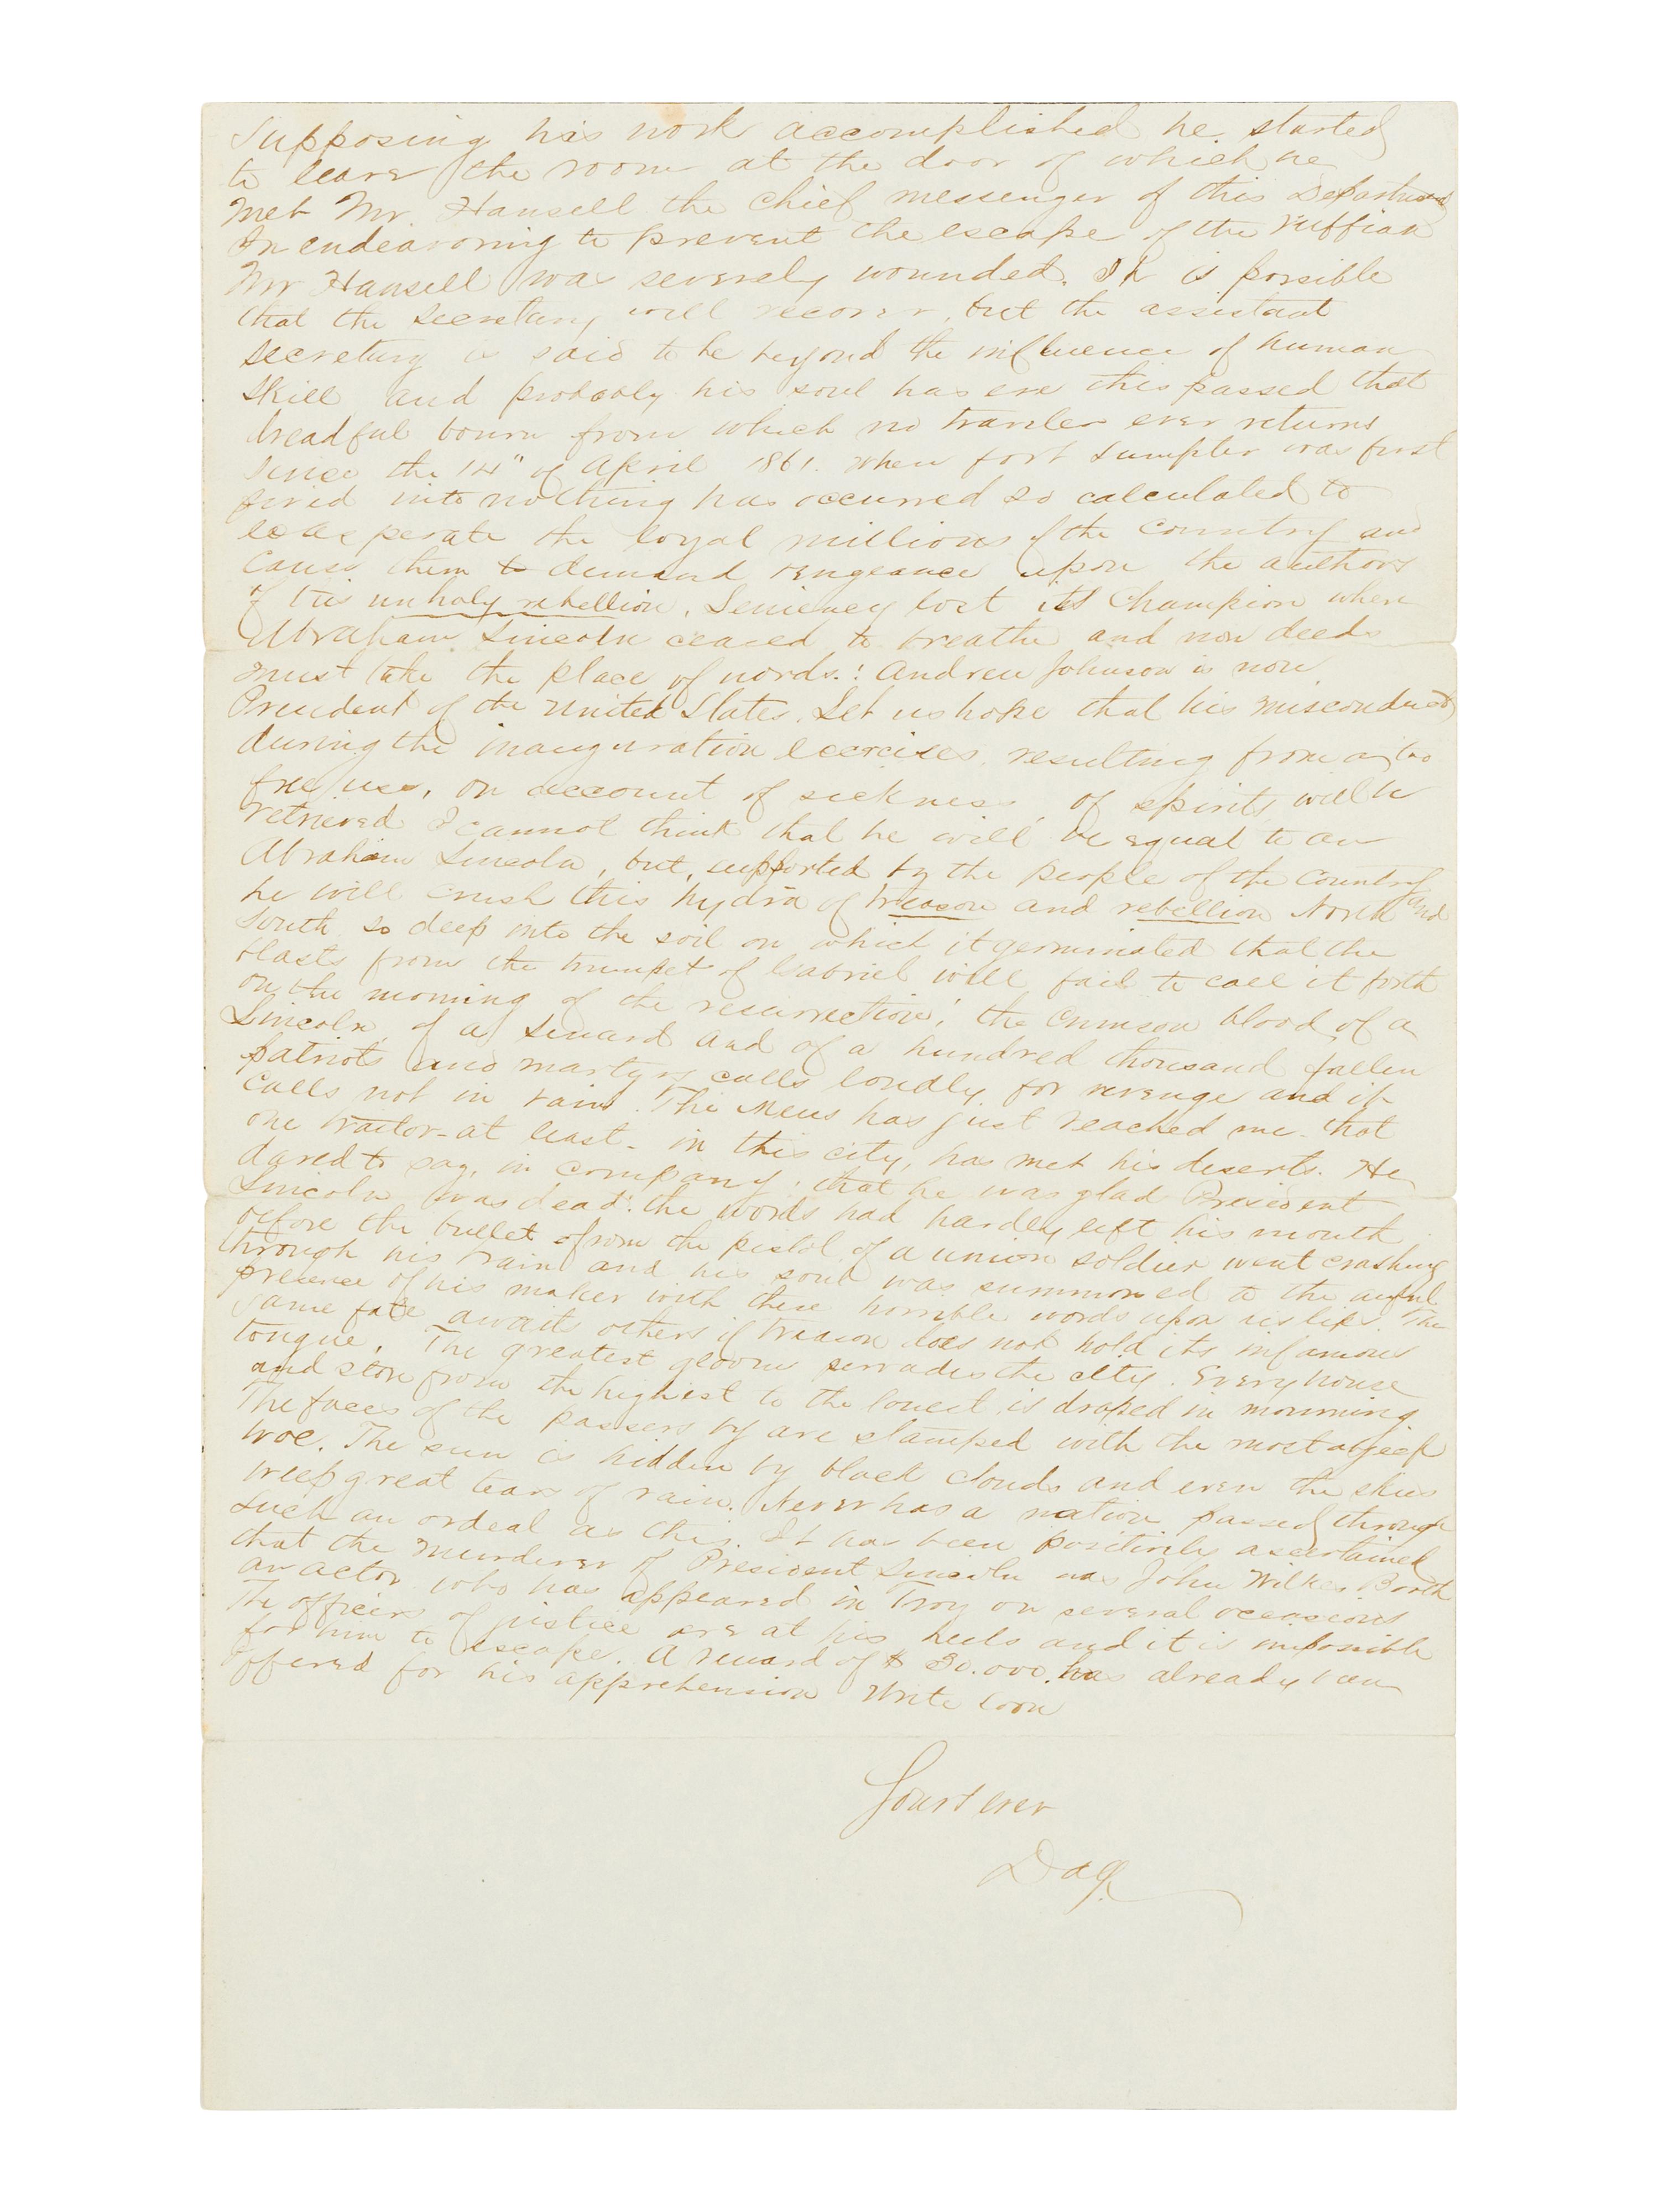 Supposing his work accomplished he started
to leave the room at the door of which he
met Mr. Hansell the Chief messenger of this Department
In endeavoring to prevent the escape of the ruffian
Mr Hansell was severely wounded. It is possible
that the Secretary will recover, but the assistant
Secretary is said to be beyond the influence of human
skill and probably his soul has ere this passed that
dreadful bourn from which no traveler ever returns
Since the 14" of April 1861. when fort Sumpter was first
fired into nothing has occurred so calculated to
exasperate the loyal millions of the country and
cause them to demand vengeance upon the authors
of this unholy rebellion. Leniency lost its Champion when
Abraham Lincoln ceased to breathe and now deeds
must take the place of words.! Andrew Johnson is now
President of the United States. Let us hope that his misconduct
during the inauguration excercises, resulting from a too
free use, on account of sickness, of spirits, will be
retrieved I cannot think that he will be equal to an
Abraham Lincoln, but, supported by the people of the country
he will crush this hydra of treason and rebellion North and
South so deep into the soil on which it germinated that the
blasts from the trumpet of Gabriel will fail to call it forth
on the morning of the resurrection! the crimson blood of a
Lincoln, of a Seward and of a hundred thousand fallen
patriots and martyrs calls loudly for revenge and it
calls not in vain. The news has just reached me that
one traitor-at least- in this city, has met his deserts. He
dared to say, in company, that he was glad President
Lincoln was dead: the words had hardly left his mouth
before the bullet from the pistol of a union soldier went crashing
through his brain and his soul was summoned to the awful
presence of his maker with these horrible words upon his lips. The
same fate awaits others if treason does not hold its infamous
tongue. The greatest gloom pervades the city. Every house
and store from the highest to the lowest is draped in mourning.
The faces of the passers by are stamped with the most abject
woe. The sun is hidden by black clouds and even the skies
weep great tears of rain. Never has a nation passed through
such an ordeal as this. It has been positively ascertained
that the murderer of President Lincoln was John Wilkes Booth
an actor who has appeared in Troy on several occasions
The officers of justice are at his heels and it is impossible
for him to escape. A reward of $ 30.000. has already been
offered for his apprehension Write soon
Yours ever
Dag.